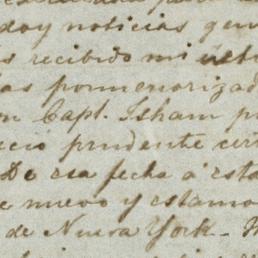 doy noticias gen
s recibido mi últi
as pormenorizad
n Capt. Isham p
eció prudente cer
De esa fecha á esta
e nuevo y estamo
de Nueva York –